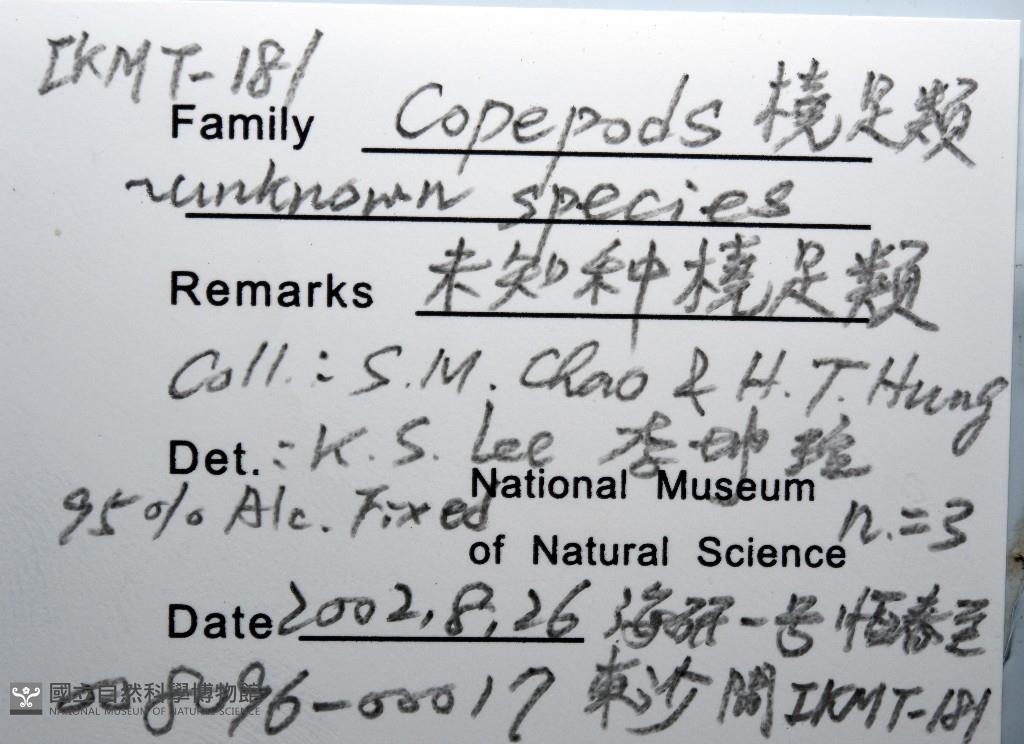 IKMT-181
Family Copepods 橈足類
~unknown species
Remarks 未知种橈足類
Coll.: S.M. Chao & H.T. Hung
Det.: K.S. Lee 李坤瑄
National Museum
95% Alc. Fixed n.=3
of Natural Science
Date 2002,8,26 海研一号恒春至
-00017 東沙間IKMT-181
國立自然科學博物館
NATIONAL MUSEUM OF NATURAL SCIENCE